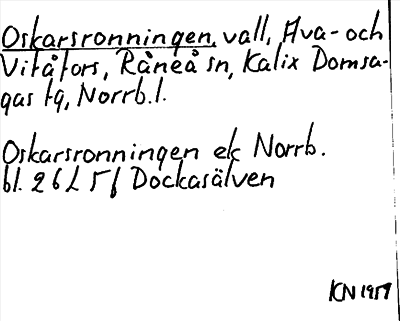 Oskarsronningen, vall, Ava- och
Vitåfors, Råneå sn, Kalix Domsa-
gas tg, Norrb.l.
Oskarsronningen ek Norrb.
bl. 26L 5f Dockasälven
KN 1959